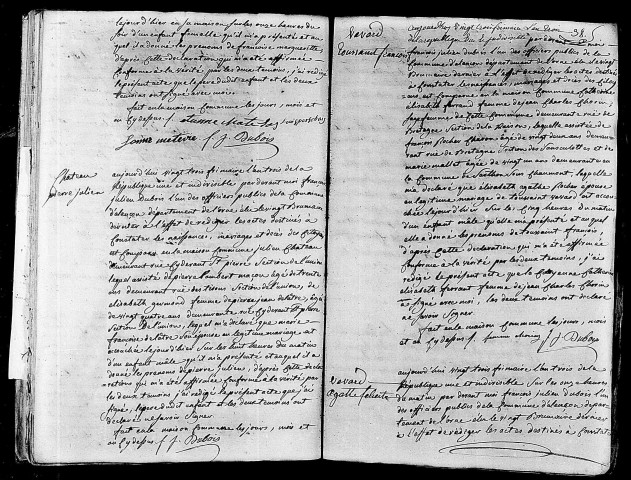 le jour d'hier en sa maison sur les onze heures du
soir d'un enfant femelle qu'il m'a présenté et au
quel il a donné les prenoms de françoise marguerite,
d'après cette déclaration qui m'a été affirmée
conforme à la vérité par les deux temoins, j'ai rédigé
le présent acte que le pere dudit enfant et les deux
temoins ont signé avec moi.
fait en la maison Commune les jours, mois et
an cy dessus.
f. J. Dubois
Chateau
pierre julien
aujourd'hui vingt trois frimaire l'an trois de la
République une et indivisible par devant moi françois
julien dubois l'un des officiers publics de la Commune
d'alençon département de l'orne élu le vingt Brumaire
dernier à l'effet de rédiger les actes destinés à
Constater les naissances, mariages et décès des Citoyens
est Comparu en la maison Commune julien Chateau
demeurant rue cydevant St pierre Section de l'union
lequel assisté de pierre lambert maçon agé de trente
ans demeurant rue des tisons Section de l'union, de
elizabeth femme de pierre jean delatre, agée
de vingt quatre ans demeurante rue cydevant St pierre
Section de l'union, lequel m'a déclaré que marie
françoise delatre son épouse en legitime mariage est
accouchée le jour d'hier sur les huit heures du matin
d'un enfant male qu'il m'a présenté et auquel il a
donné les prenoms de pierre julien, d'après cette décla
ration qui m'a été affirmée conforme à la vérité par
les deux temoins, j'ai rédigé le présent acte que j'ai
signé, le pere dudit enfant et les deux temoins ont
déclaré ne savoir signer
fait en la maison Commune les jours, mois et
an cy dessus f. J. Dubois
38.
vavard
toussaint françois
aujourd'hui vingt trois frimaire l'an trois
de la république une et indivisible par devant moi
françois julien dubois l'un des officiers publics de la
Commune d'alençon département de l'orne élu le vingt
Brumaire dernier à l'effet de rédiger les actes destinés
à Constater les naissances, mariages et décès des Citoyens
est Comparue en la maison Commune Catherine
elisabeth ferrand femme de jean Charles Choron,
sage femme de cette Commune demeurant rue de
Bretagne Section de la , laquelle assistée de
françois Rocher Choron agé de vingt deux ans demeu
rant rue de Bretagne Section des Sans culottes et de
marie mallet agée de vingt un ans demeurant en
la Commune de , laquelle
m'a déclaré que elisabeth agathe Rocher épouse
en legitime mariage de toussaint vavard est accou
chée le jour d'hier sur les cinq heures du matin
d'un enfant male qu'elle m'a présenté et auquel
elle a donné les prenoms de toussaint françois
d'après cette déclaration qui m'a été affirmée
conforme à la vérité par les deux temoins, j'ai
rédigé le présent acte que la Citoyenne Catherine
elisabeth ferrand femme de jean Charles Choron
a signé avec moi, les deux temoins ont déclaré
ne savoir signer
fait en la maison Commune les jours, mois
et an cy dessus. femme choron f. J. Dubois
vavard
agathe felicité
aujourd'hui vingt trois frimaire l'an trois de la
République une et indivisible sur les onze heures
du matin par devant moi françois julien dubois l'un
des officiers publics de la Commune d'alençon départe
ment de l'orne élu le vingt Brumaire dernier
à l'effet de rédiger les actes destinés à Constater